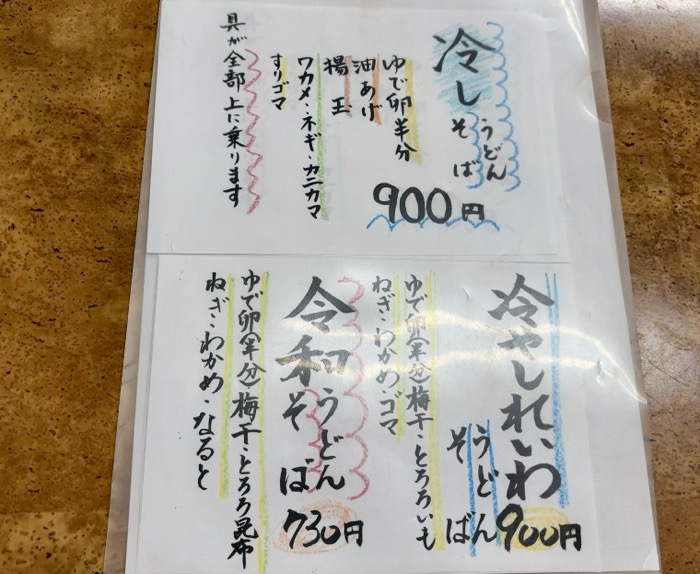 冷し
うどん
そば
ゆで卵半分
油あげ
揚玉
ワカメ・ネギ・カニカマ
すりゴマ
具が全部上に乗ります
900円
冷やしれいわ
うどん
そば
900円
ゆで卵(半分)梅干・とろろいも
ねぎ・わかめ・ゴマ
令和
うどん
そば
730円
ゆで卵(半分)梅干・とろろ昆布
ねぎ・わかめ・なると